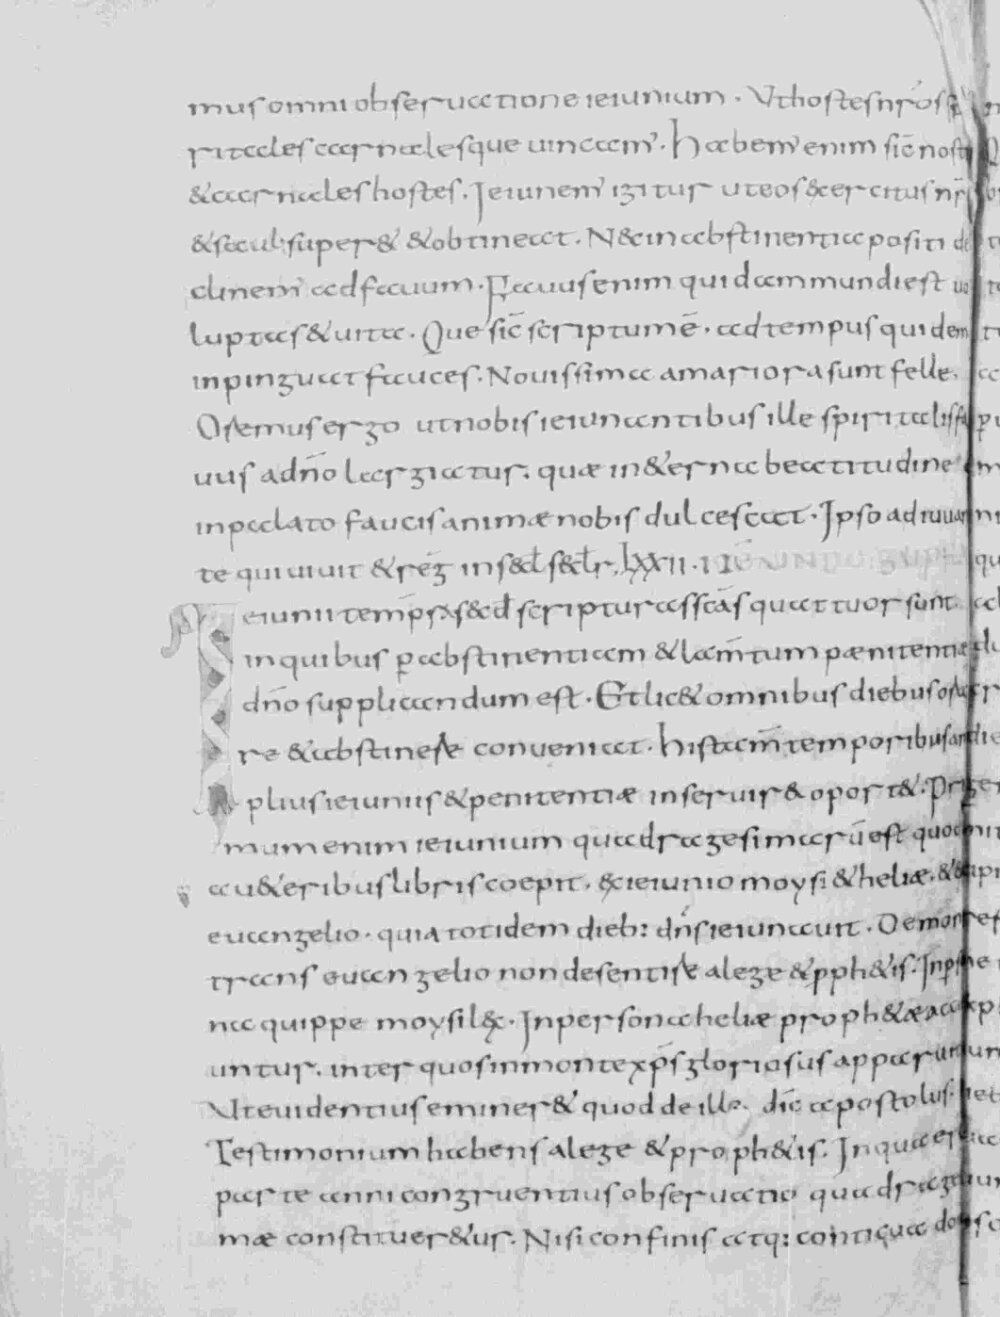 mus omni obseruatione ieiunium. Ut hostes nr̄os spi
ritales carnalesque uincam'. Habem' enim sic̄ nost
& carnales hostes. Ieiunem' igitur ut eos exercitus nr̄i
& sæculi super& & obtineat. N& in abstinentia positi de
clinem' ad fauum. Fauus enim quidam mundi est uo
luptas & uita. Que sic̄ scriptum ē. ad tempus quidem
inpinguat fauces. Nouissima amariora sunt felle.
Oremus ergo ut nobis ieiunantibus ille spiritalis fa
uus a dn̄o largiatur. quæ in &erna beatitudine
in palato faucis animæ nobis dulcescat. Ipso adiuuan
te qui uiuit & reḡ in sæcl̄ sæcl̄r. LXXII. II
Ieiunii temp̄ra secd̄ scripturas sc̄as quattuor sunt
in quibus p abstinentiam & lam̄tum pænitentiæ
dn̄o supplicandum est. Et lic& omnibus diebus ora
re & abstinere conueniat. his tam̄ temporibus am
plius ieiuniis & penitentiæ inseruire oport&. Pri
mum enim ieiunium quadragesimarū est quod
a u&eribus libris coepit. ex ieiunio moysi & heliæ. & ex
euangelio. quia totidem dieb: dn̄s ieiunauit. Demons
trans euangelio non desentire a lege & proph&is. In perso
na quippe moysi lex. In persona heliæ proph&æ acci
untur. inter quos in monte xp̄s gloriosus apparuit
Ut euidentius eminer& quod de illo dic̄ apostolus.
Testimonium habens a lege & proph&is. In qua er
parte anni congruentius obseruatio quadragesi
mæ constituer&ur. Nisi confinis atq: contigua do